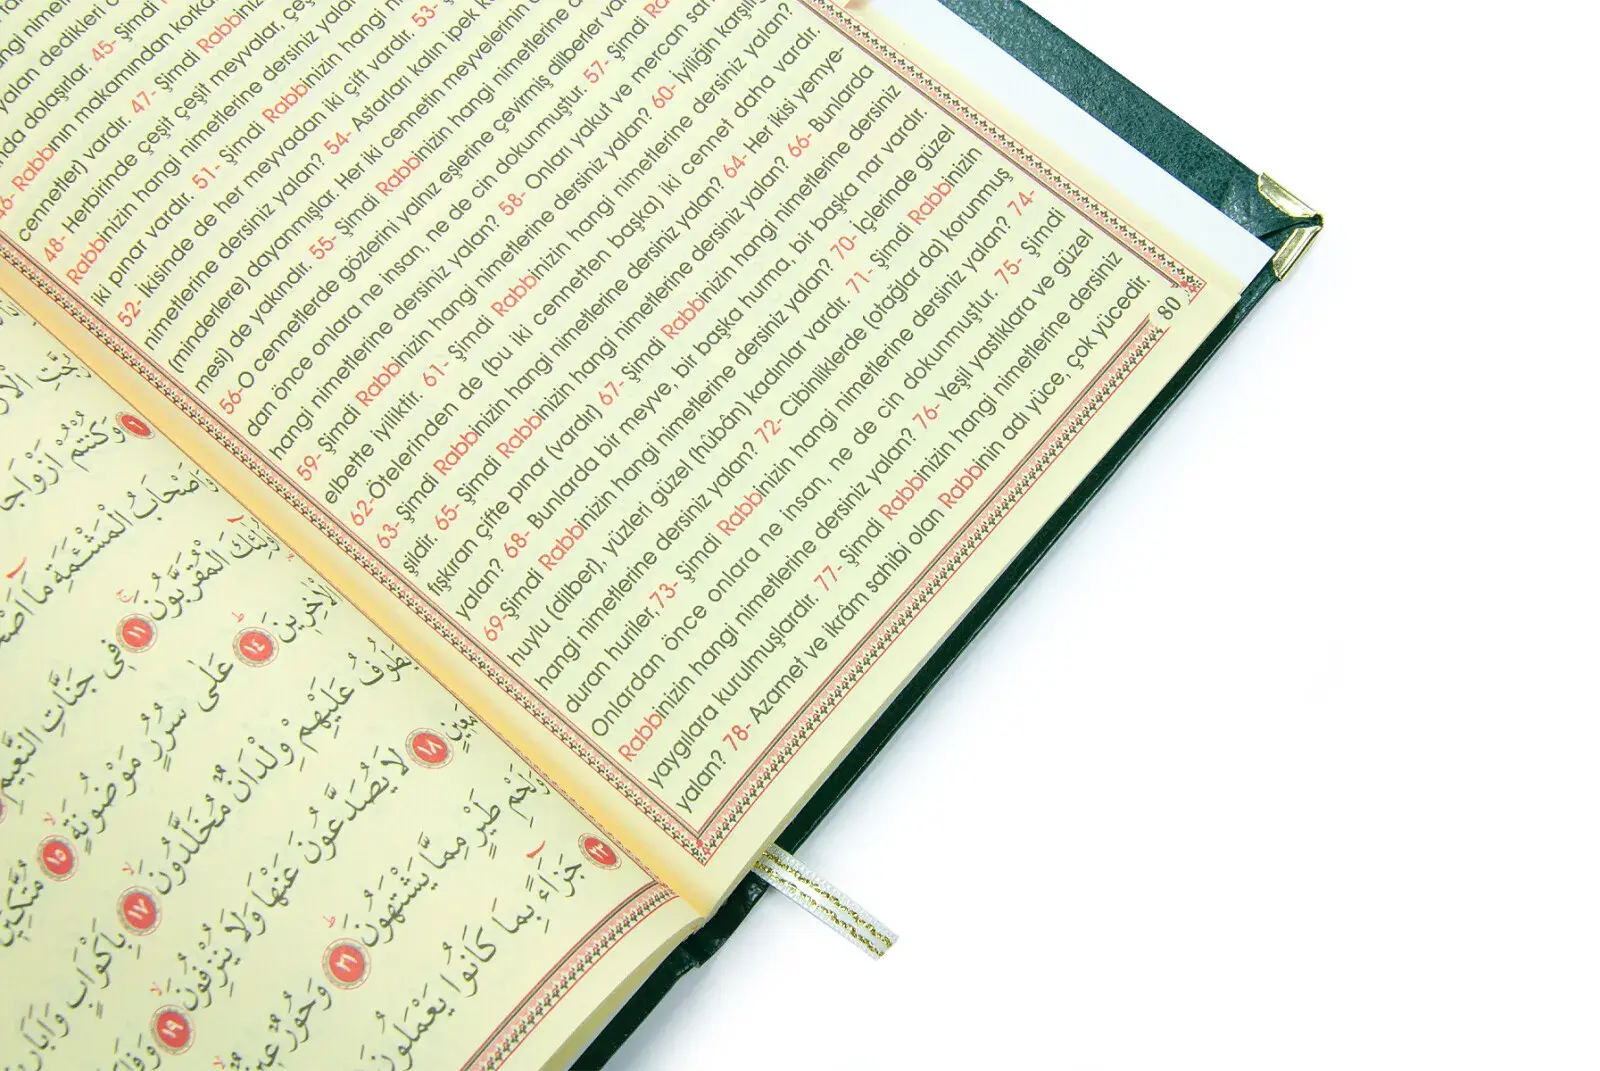 yalan dedikleri
dolaşırlar. 45- Şimdi
46- Rabbının makamından korka
cennetler) vardır. 47- Şimdi Rabbiniz
48- Herbirinde çeşit çeşit meyvalar,
Rabbinizin hangi nimetlerine dersiniz
iki pınar vardır. 51- Şimdi Rabbinizin hangi
52- İkisinde de her meyvadan iki çift vardır. 53-
nimetlerine dersiniz yalan? 54- Astarları kalın ipek
(minderlere) dayanmışlar. Her iki cennetin meyvelerinin
mesi) de yakındır. 55- Şimdi Rabbinizin hangi nimetlerine
56-O cennetlerde gözlerini yalnız eşlerine çevirmiş dilberler
dan önce onlara ne insan, ne de cin dokunmuştur. 57- Şimdi
hangi nimetlerine dersiniz yalan? 58- Onları yakut ve mercan
59- Şimdi Rabbinizin hangi nimetlerine dersiniz yalan? 60- İyiliğin
elbette iyiliktir. 61- Şimdi Rabbinizin hangi nimetlerine dersiniz yalan?
62-Ötelerinden de (bu iki cennetten başka) iki cennet daha vardır.
63- Şimdi Rabbinizin hangi nimetlerine dersiniz yalan? 64- Her ikisi yemye-
şildir. 65- Şimdi Rabbinizin hangi nimetlerine dersiniz yalan? 66- Bunlarda
fışkıran çifte pınar (vardır) 67- Şimdi Rabbinizin hangi nimetlerine dersiniz
yalan? 68- Bunlarda bir meyve, bir başka hurma, bir başka nar vardır.
69-Şimdi Rabbinizin hangi nimetlerine dersiniz yalan? 70- İçlerinde güzel
huylu (dilber), yüzleri güzel (hûbân) kadınlar vardır. 71- Şimdi Rabbinizin
hangi nimetlerine dersiniz yalan? 72- Cibinliklerde (otağlar da) korunmuş
duran huriler,73- Şimdi Rabbinizin hangi nimetlerine dersiniz yalan? 74-
Onlardan önce onlara ne insan, ne de cin dokunmuştur. 75- Şimdi
Rabbinizin hangi nimetlerine dersiniz yalan? 76- Yeşil yastıklara ve güzel
yaygılara kurulmuşlardır. 77- Şimdi Rabbinizin hangi nimetlerine dersiniz
yalan? 78- Azamet ve İkrâm sahibi olan Rabbinin adı yüce, çok yücedir.
80
٦ وَكُنْتُمْ اَزْوَاجًا
اَصْحَابُ الْمَشْـَٔمَةِ مَا
الْمُقَرَّبُونَ ١١ فِى جَنَّاتِ النَّعِيمِ
الْاٰخِرِينَ ١٤ عَلٰى سُرُرٍ مَوْضُونَةٍ ١٥
يَطُوفُ عَلَيْهِمْ وِلْدَانٌ مُخَلَّدُونَ ١٧ بِاَكْوَابٍ
مَعِينٍ ١٨ لَا يُصَدَّعُونَ عَنْهَا وَلَا يُنْزِفُونَ ١٩
وَلَحْمِ طَيْرٍ مِمَّا يَشْتَهُونَ ٢١ وَحُورٌ عِينٌ
جَزَٓاءً بِمَا كَانُوا يَعْمَلُونَ